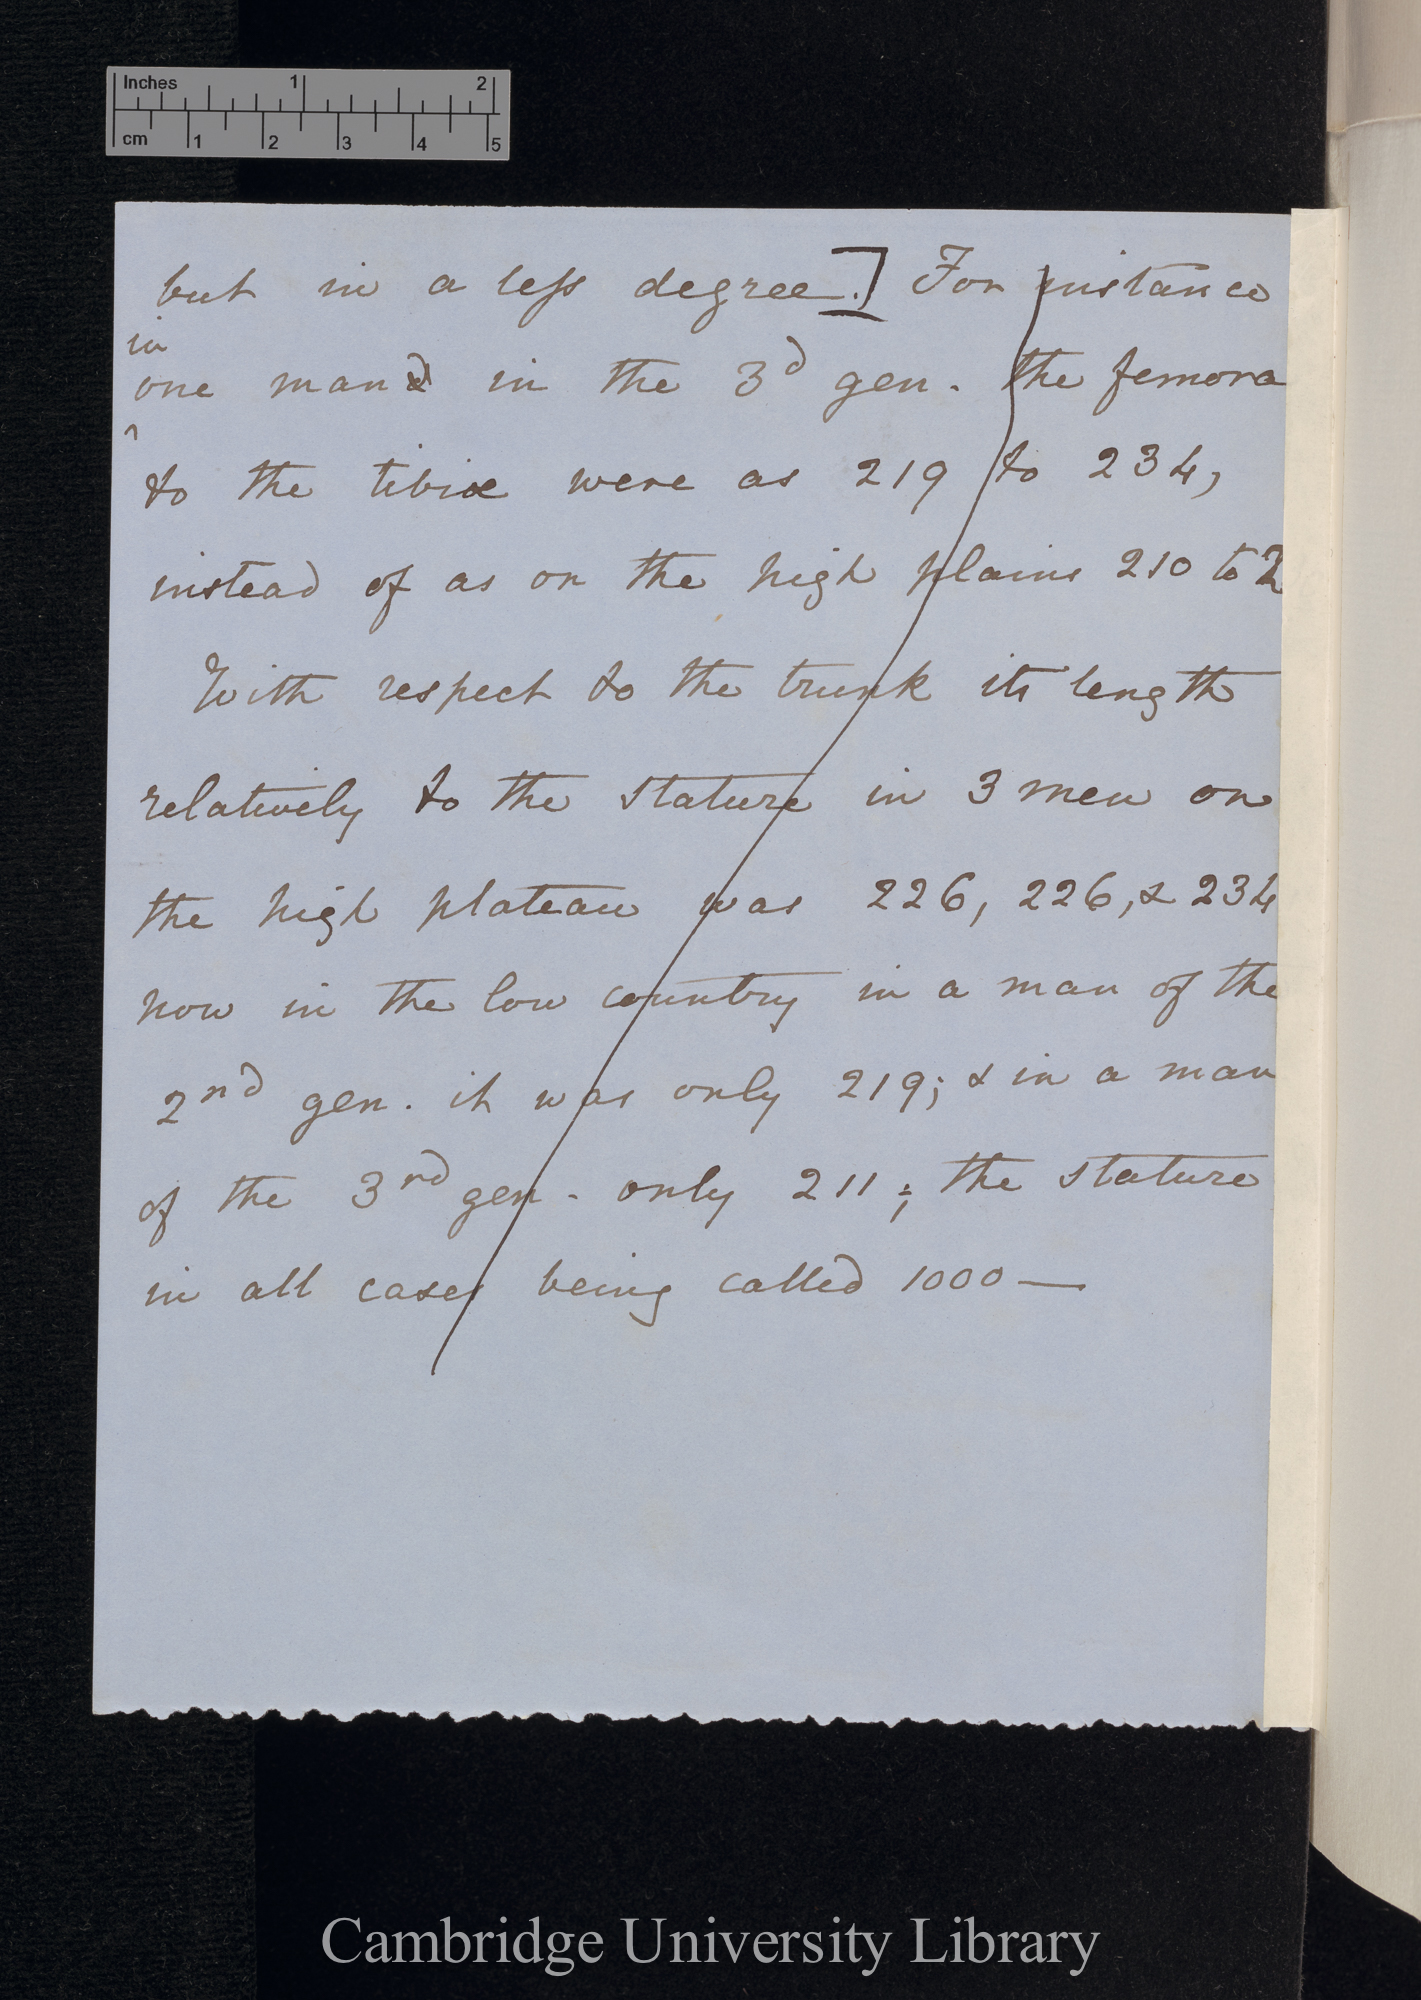 Inches 1 2
cm 1 2 3 4 5
but in a less degree.] For instance
in
one man in the 3d gen. the femora
to the tibiæ were as 219 to 234,
instead of as on the high plains 210 to 2
With respect to the trunk its length
relatively to the stature in 3 men on
the high plateau was 226, 226, & 234
now in the low country in a man of the
2nd gen. it was only 219; & in a man
of the 3rd gen. only 211; the stature
in all cases being called 1000 —
Cambridge University Library